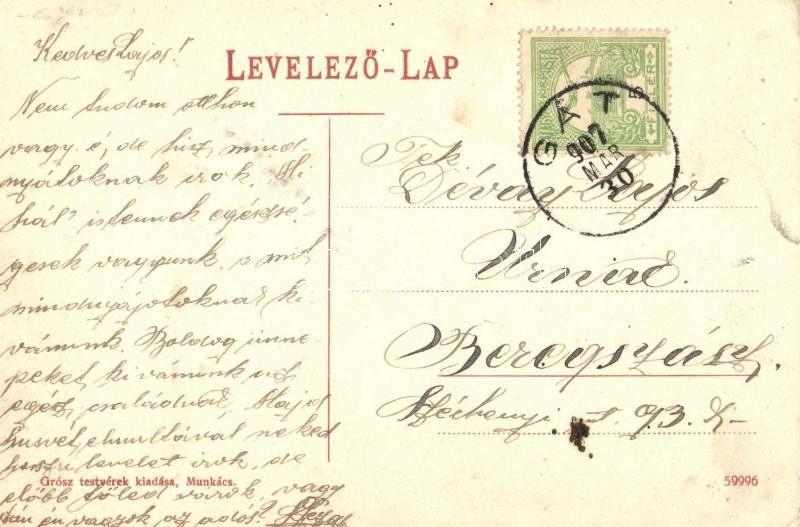 LEVELEZŐ-LAP
Kedves Lajos!
Nem tudom otthon
vagy é, de hisz mind-
nyátoknak irok. Hi-
hál' istennek egészsé-
gesek vagyunk, a mit
mindnyájotoknak ki-
vánunk. Boldog ünne-
peket kivánunk az
egész családnak, Majd
husvét elmultával neked
hosszu levelet irok, de
előbb tőled várok, vagy
én vagyok az adós?
FILLÉR
GÁT
907
MAR
30
Tek.
Dévay Lajos
Urnak.
Beregszász.
Széchenyi u. 93. sz
Grósz testvérek kiadása, Munkács.
59996